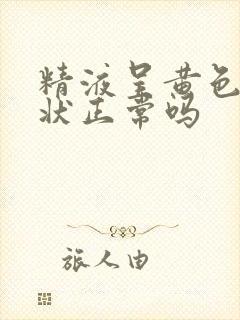 精液呈黄色
状正常吗
旅人由